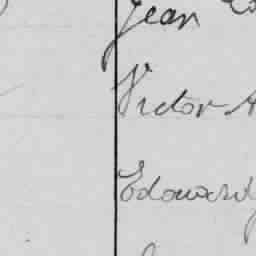 Jean
Victor A
Edouard